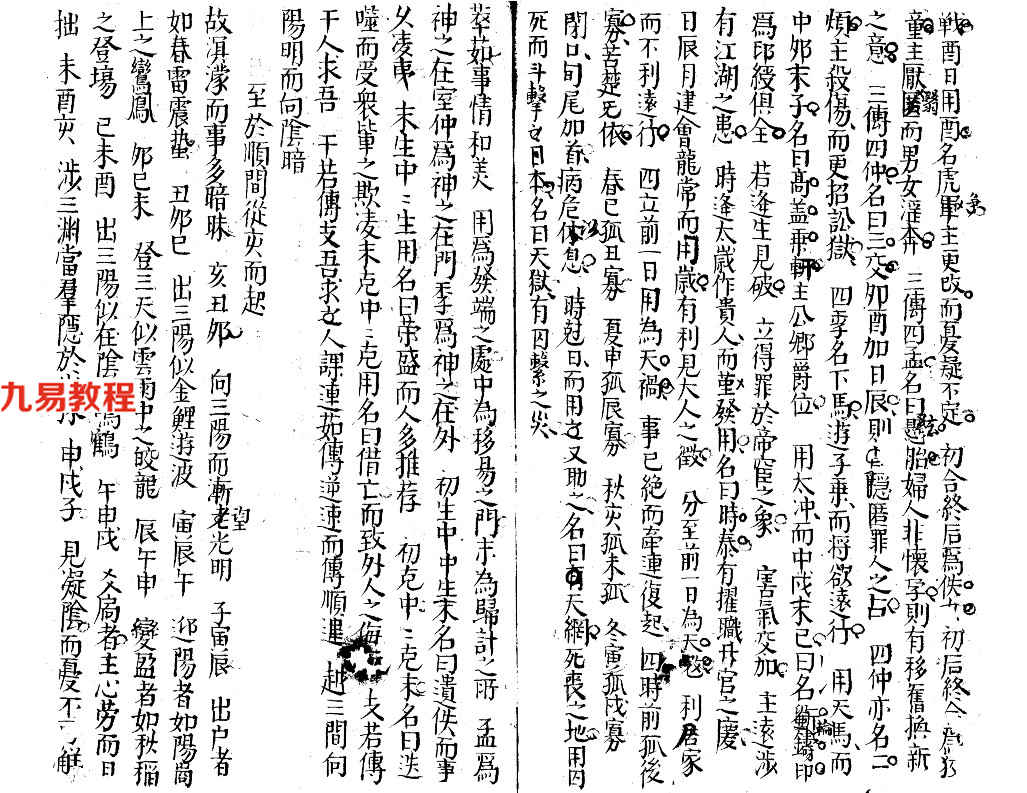 戰酉日用酉名虎 主更改而憂疑不定 初合終后為佚女 初后終合為狡
童主厭 而男女淫奔 三傳四孟名曰懸胎婦人非懷孕則有移舊換新
之意 三傳四仲名曰三交卯酉加日辰則主隱匿罪人之占 四仲亦名二
煩主殺傷而更招訟獄 四季名下馬游子乘而將欲遠行 用天馬而
中卯末子名曰高盖乘軒主公卿爵位 用太冲而中戌末巳曰名斲輪鑄印
為印綬俱全 若逢生見破 立得罪於帝宦之象 害氣交加 主遠涉
有江湖之患 時逢太歲作貴人而堇發用名曰時泰有擢職升官之慶
日辰月建會龍常而用歲有利見大人之徵 分至前一日為天 利居家
而不利遠行 四立前一日用為天禍 事已絕而牽連復起 四時前孤後
寡苦楚无依 春巳孤丑寡 夏申孤辰寡 秋亥孤未孤 冬寅孤戌寡
閉口旬尾加首病危休息 時尅日而用之又助之名曰天網死喪之地用囚
死而斗擊之日本名曰天獄有囚繫之災
萃茹事情和美 用為發端之處中為移易之門末為歸計之所 孟為
神之在室仲為神之在門季為神之在外 初生中中生末名曰遺佚而事
久凌夷 末生中三生用名曰荣盛而人多推荐 初克中三克末名曰迭
噬而受衆辈之欺凌末克中三克用名曰借亡而致外人之侮 支若傳
干人求吾 干若傳支吾求之人課連茹傳逆連而傳順連 越三間向
陽明而向陰暗
至於順間從亥而起
故溟濛而事多暗昧 亥丑卯 向三陽而漸老望光明 子寅辰 出户者
如春雷震蛰 丑卯巳 出三陽似金鯉游波 寅辰午 迎陽者如陽
上之鸞鳳 卯巳未 登三天似雲雨中之 龍 辰午申 變盈者如秋稲
之登場 巳未酉 出三陽似在陰 鶴 午申戌 局者主心勞而日
拙 未酉亥 涉三淵當 隱於 申戌子 見凝陰而憂不 解
九易教程